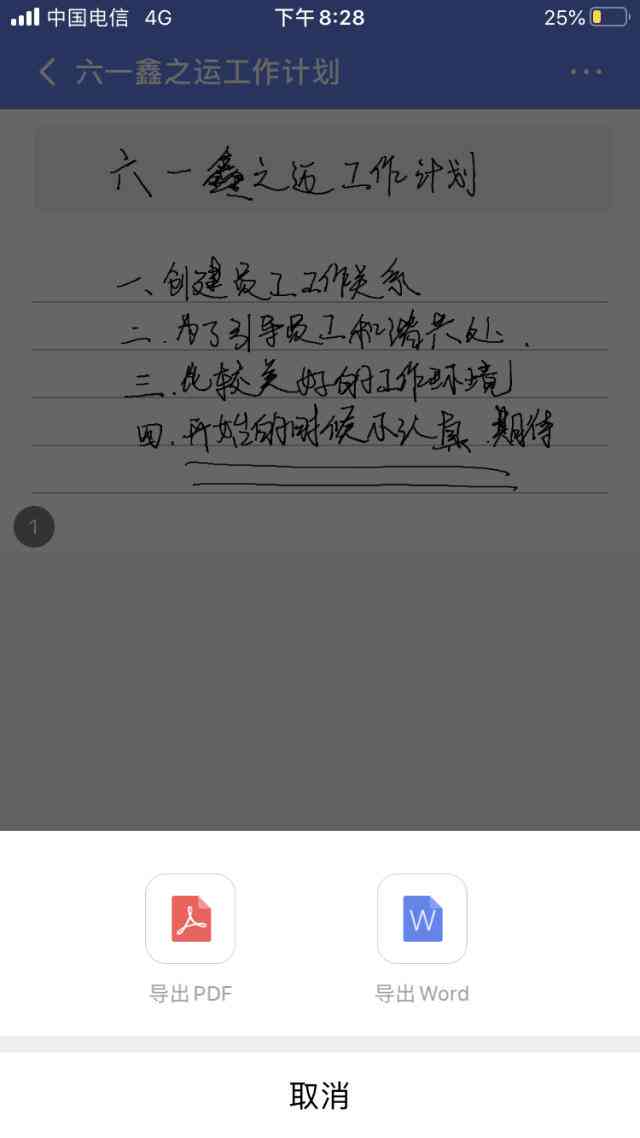 中国电信 4G 下午8:28 25%
六一鑫之运工作计划
六一鑫之运工作计划
一、创建员工工作关系
二.为了引导员工和谐共处.
三.比较美好的工作环境
四.开始的时候不认真.期待
1
导出PDF 导出Word
取消